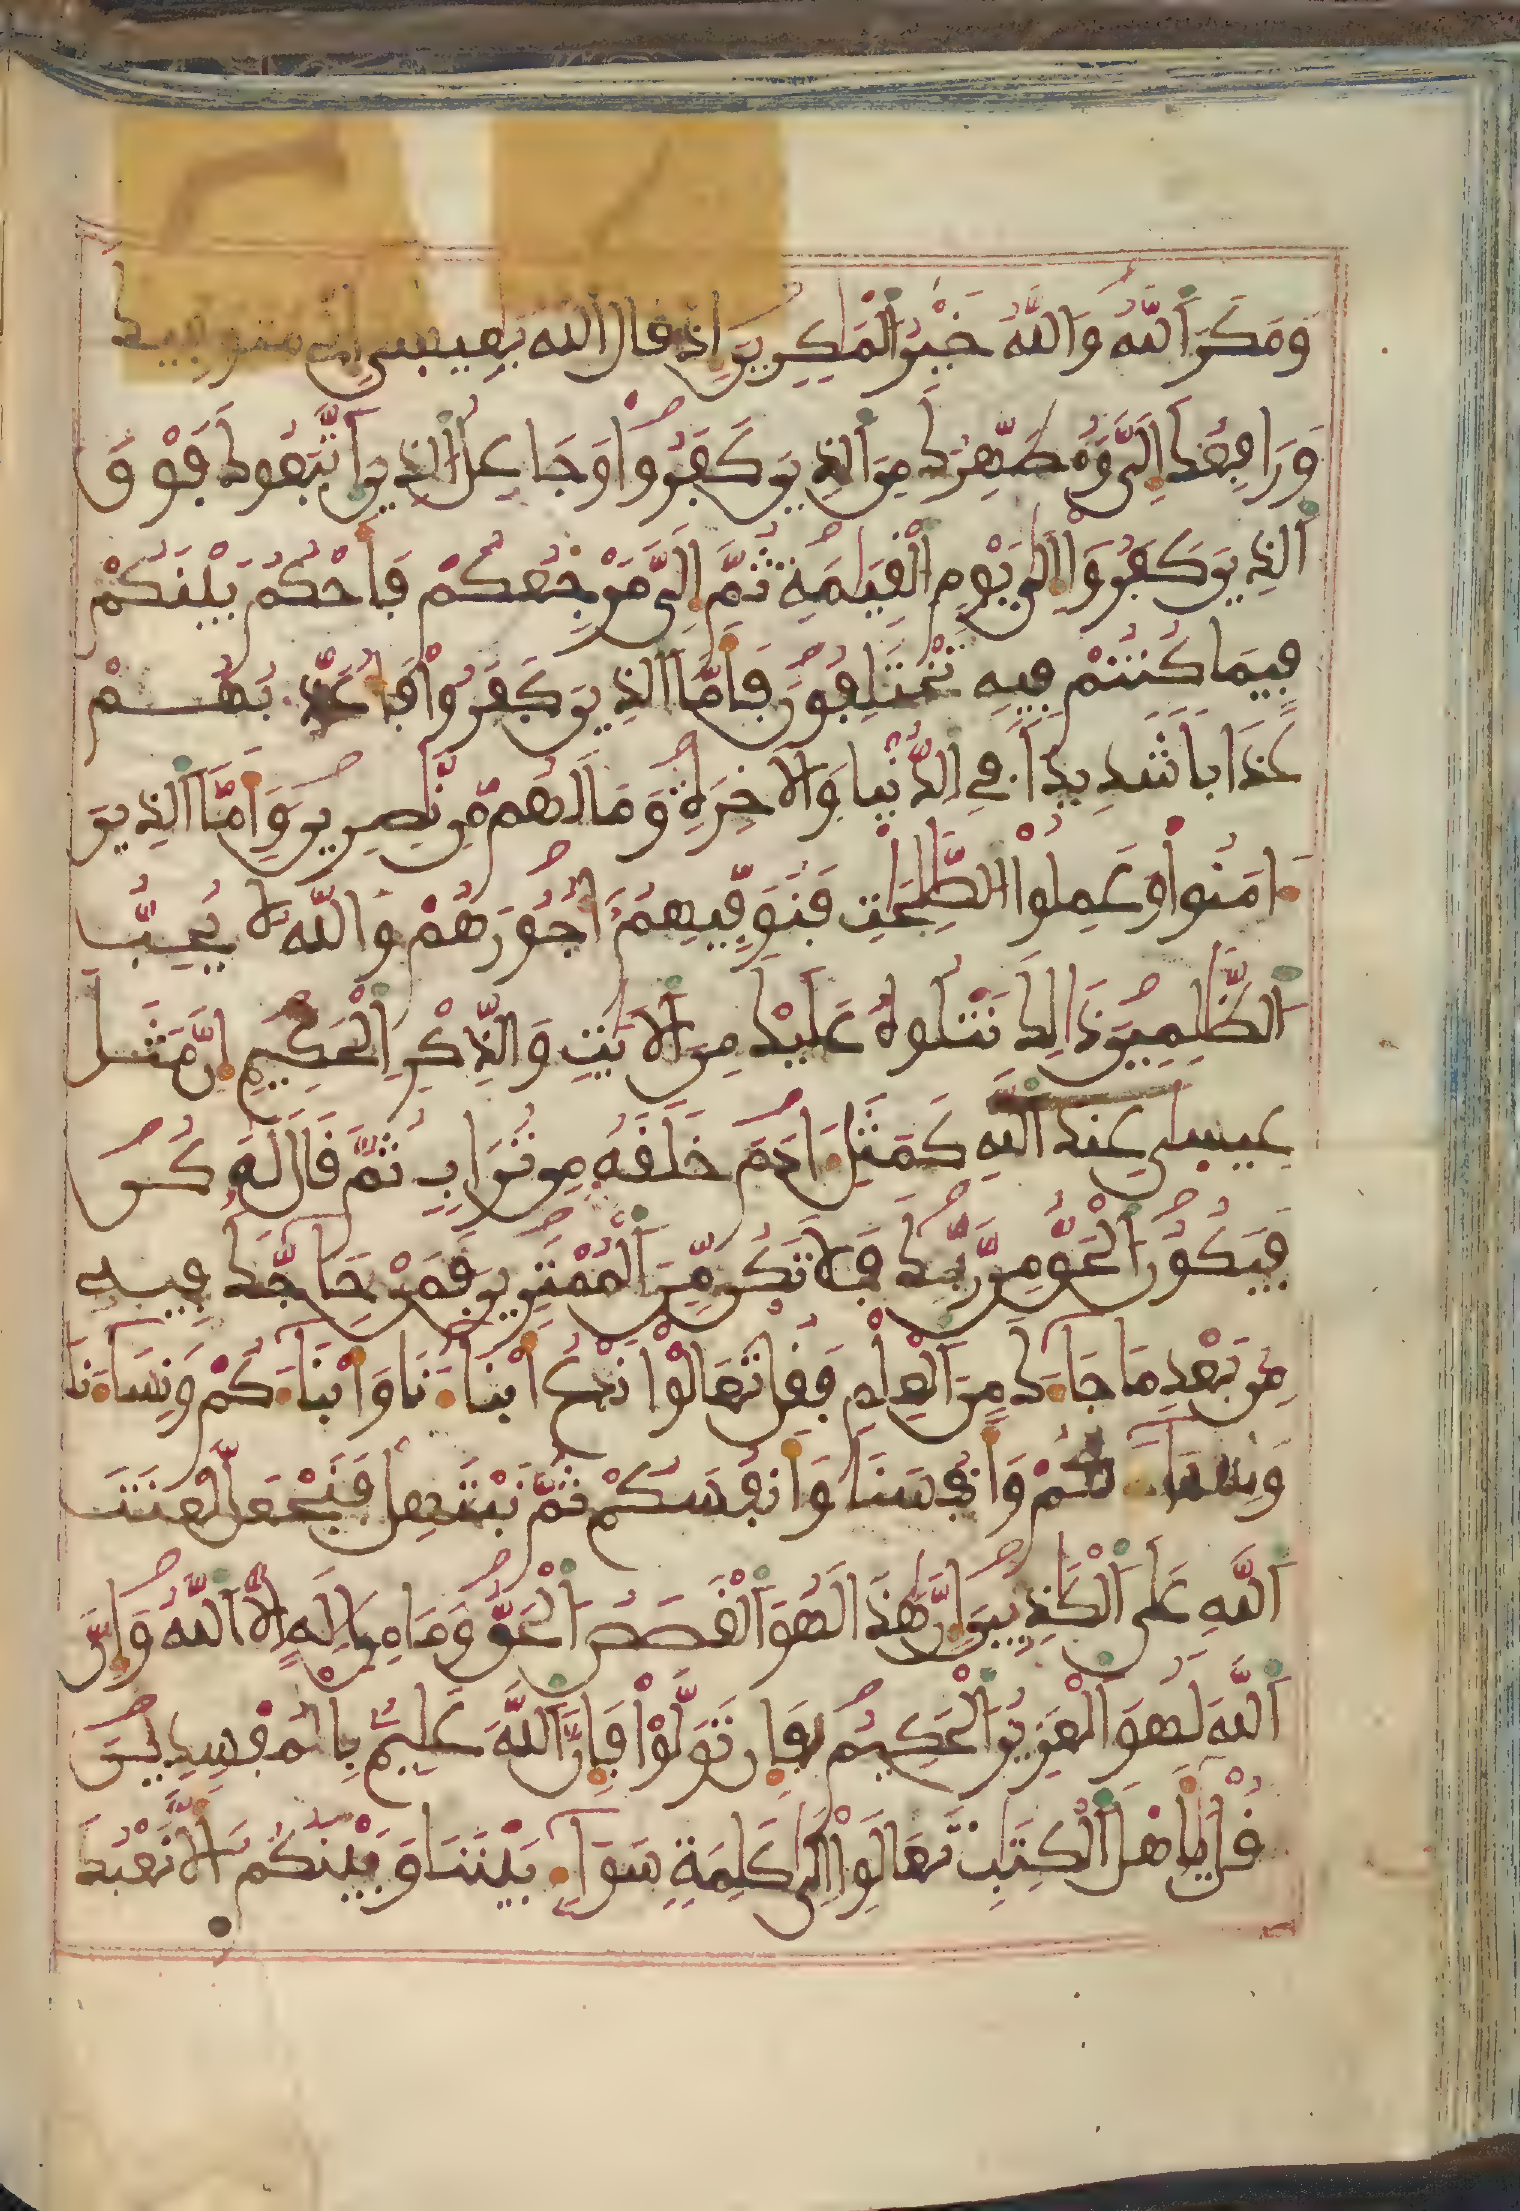 وَمَكَرَ اَللَّهُ وَاللَّهُ خَيْرُ اُلْمَٰكِرِينَ إِذْ قَالَ اَللَّهُ يَٰعِيسَىٰ إِنِّي مُتَوَفِّيكَ
وَرَافِعُكَ إِلَىَّ وَمُطَهِّرُكَ مِنَ اَلذِينَ كَفَرُواْ وَجَاعِلُ اُلذِينَ اَتَّبَعُوكَ فَوْقَ
اَلذِينَ كَفَرُواْ إِلَىٰ يَوْمِ اِلْقِيَٰمَةِ ثُمَّ إِلَىَّ مَرْجِعُكُمْ فَأَحْكُمُ بَيْنَكُمْ
فِيمَا كُنتُمْ فِيهِ تَخْتَلِفُونَ فَأَمَّا اَلذِينَ كَفَرُواْ فَأُعَذِّبُهُمْ
عَذَابًا شَدِيدًا فِي اِلدُّنْيَا وَالَاخِرَةِ وَمَا لَهُم مِّن نَّٰصِرِينَ وَأَمَّا اَلذِينَ
ءَامَنُواْ وَعَمِلُواْ اُلصَّٰلِحَٰتِ فَنُوَفِّيهِمُ أُجُورَهُمْ وَاللَّهُ لَا يُحِبُّ
اُلظَّٰلِمِينَ ذَٰلِكَ نَتْلُوهُ عَلَيْكَ مِنَ اَلَايَٰتِ وَالذِّكْرِ اِلْحَكِيمِ إِنَّ مَثَلَ
عِيسَىٰ عِندَ اَللَّهِ كَمَثَلِ ءَادَمَ خَلَقَهُ مِن تُرَابٍ ثُمَّ قَالَ لَهُ كُن
فَيَكُونُ اُلْحَقُّ مِن رَّبِّكَ فَلَا تَكُن مِّنَ اَلْمُمْتَرِينَ فَمَنْ حَاجَّكَ فِيهِ
مِن بَعْدِ مَا جَاءَكَ مِنَ اَلْعِلْمِ فَقُلْ تَعَالَوْاْ نَدْعُ أَبْنَاءَنَا وَأَبْنَاءَكُمْ وَنِسَاءَنَا
وَنِسَاءَكُمْ وَأَنفُسَنَا وَأَنفُسَكُمْ ثُمَّ نَبْتَهِلْ فَنَجْعَل لَّعْنَتَ
اَللَّهِ عَلَى اَلْكَٰذِبِينَ إِنَّ هَٰذَا لَهُوَ اَلْقَصَصُ اُلْحَقُّ وَمَا مِنِ اِلَٰهٍ اِلَّا اَللَّهُ وَإِنَّ
اَللَّهَ لَهُوَ اَلْعَزِيزُ اُلْحَكِيمُ فَإِن تَوَلَّوْاْ فَإِنَّ اَللَّهَ عَلِيمٌ بِالْمُفْسِدِينَ
قُلْ يَٰأَهْلَ اَلْكِتَٰبِ تَعَالَوِاْ اِلَىٰ كَلِمَةٍ سَوَاءٍ بَيْنَنَا وَبَيْنَكُمُ أَلَّا نَعْبُدَ